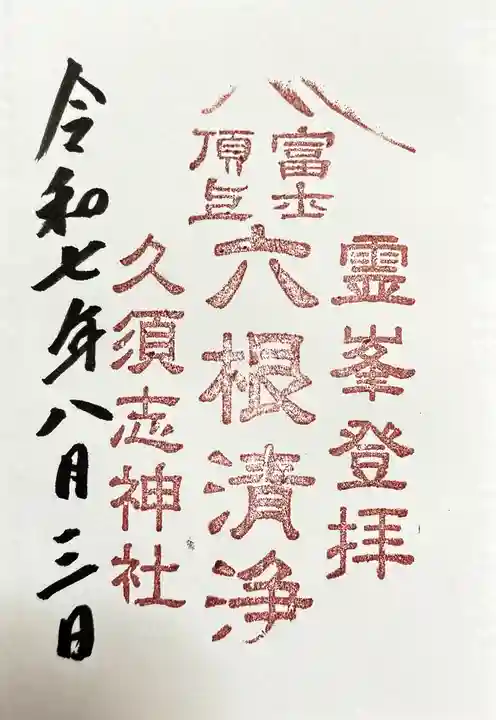 霊峯登拝
富士
頂上
六根清浄
久須志神社
令和七年八月三日